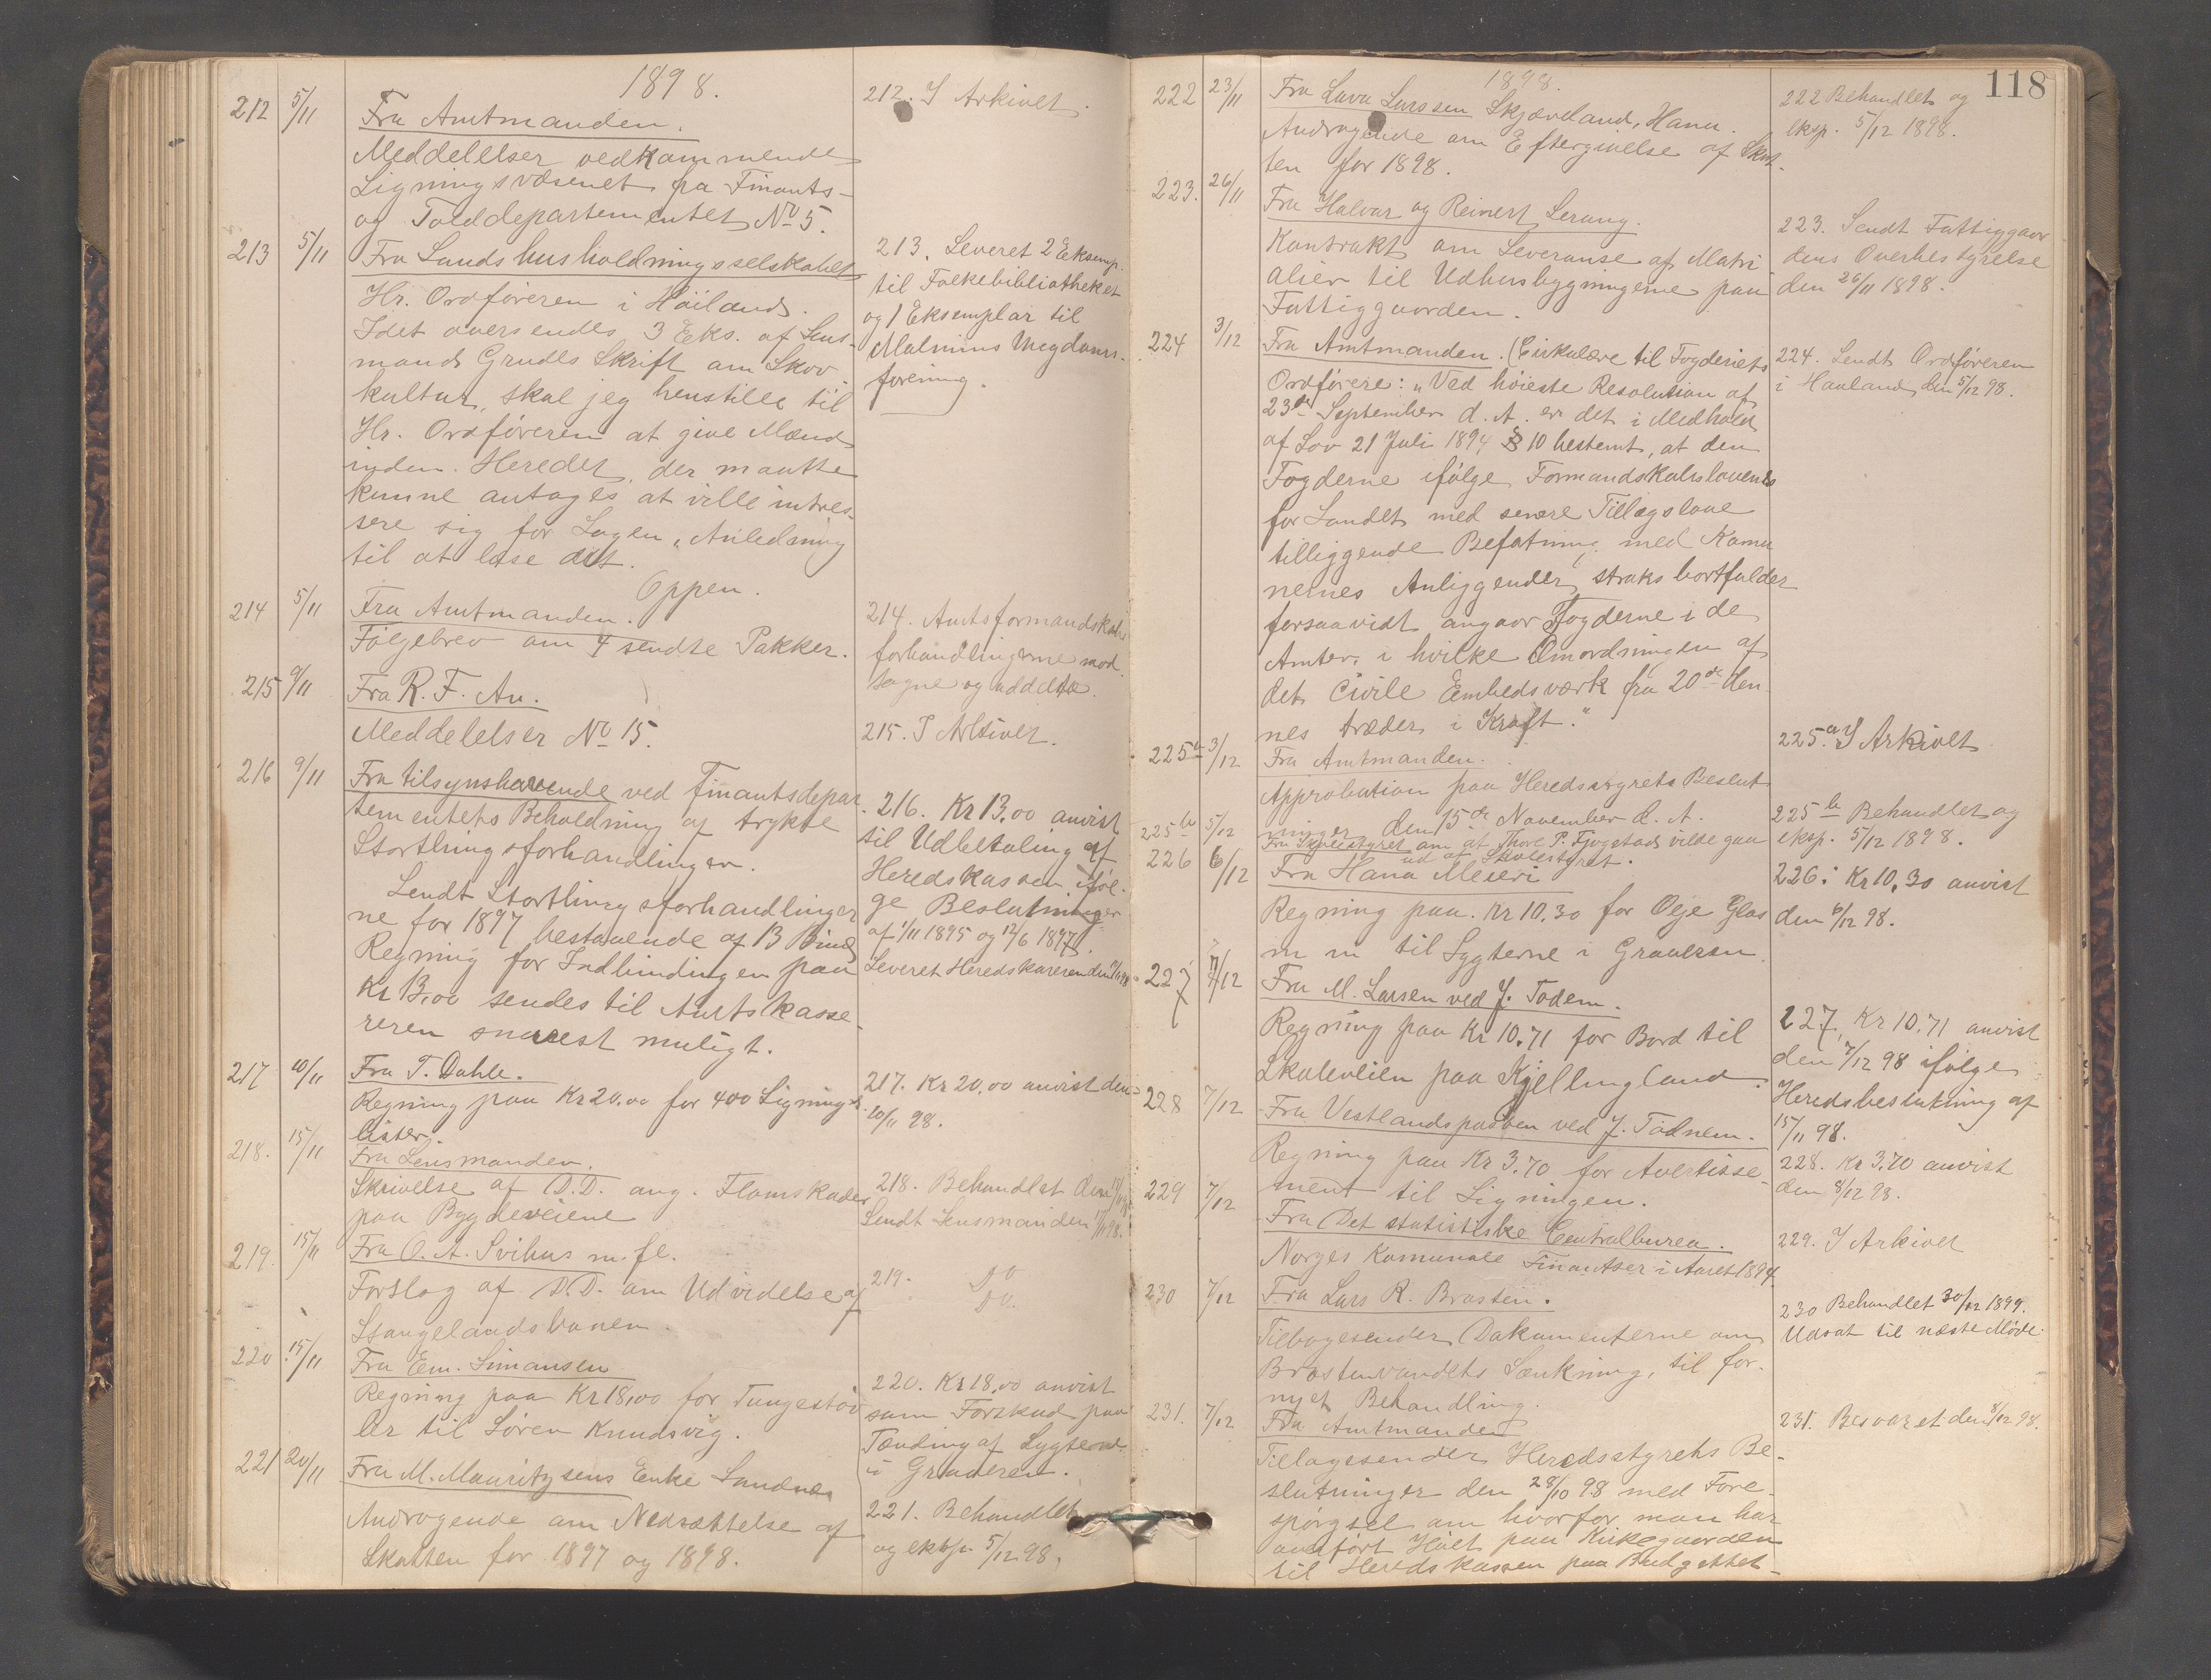 1898.
212 5/11 Fra Amtmanden.
Meddelelser vedkommende
Ligningsvæsenet fra Finants-
og Tolddepartementet No 5.
212. I Arkivet.
213 5/11 Fra Landshusholdningsselskabet
Hr. Ordføreren i Höiland.
Idet oversendes 3 Eks. af Lens-
mand Grudes Skrift om Skov
kultur, skal jeg henstille til
Hr. Ordføreren at give Mænd
inden Heredet, der maatte
kunne antages at ville intres-
sere sig for Sagen, Anledning
til at læse det.
Oppen.
213. Leveret 2 Eksemp.
til Folkebibliotheket
og 1 Eksemplar til
Malmins Ungdoms-
forening.
214 5/11 Fra Amtmanden.
Følgebrev om 4 sendte Pakker.
214. Amtsformandskabs
forhandlingerne mod-
tagne og uddelte.
215 9/11 Fra R. F. Au.
Meddelelser No 15.
215. I Arkivet.
216 9/11 Fra tilsynshavende ved Finantsdepar
tementets Beholdning af trykte
Storthingsforhandlinger.
Sendt Storthingsforhandlinger
ne for 1897 bestaaende af 13 Bind
Regning for Indbindingen paa
Kr 13,00 sendes til Amtskasse-
reren snarest muligt.
216. Kr 13,00 anvist
til Udbetaling af
Heredskassen iføl-
ge Beslutninger
af 1/11 1895 og 12/6 1897.
Leveret Heredskasereren den
217 10/11 Fra T. Dahle.
Regning paa Kr 20.00 for 400 Lignings
lister.
217. Kr 20,00 anvist den
10/11 98.
218. 15/11 Fra Lensmanden.
Skrivelse af D.D. ang. Flomskader
paa Bygdeveiene
218. Behandlet den
Sendt Lensmanden
219. 15/11 Fra O. A. Svihus m. fl.
Forslag af D.D. om Udvidelse af
Stangelandsvanen.
219. Do
Do.
220 15/11 Fra Em. Simonsen
Regning paa Kr 18,00 for Tungestöv
ler til Søren Knudsvig.
220. Kr 18,00 anvist
som Forskud paa
Tænding af Lygterne
i Graveren.
221 20/11 Fra M. Mauritzsens Enke Sandnes
Andragende om Nedsættelse af
Skatten for 1897 og 1898.
221. Behandlet
og eksp. 5/12 98.
118
1898.
222 23/11 Fra Lava Larssen Skjæveland, Hana.
Andragende om Eftergivelse af Skat-
ten for 1898.
222 Behandlet og
eksp. 5/12 1898.
223. 26/11 Fra Halvor og Reinert Lerang.
Kontrakt om Leveranse af Matri
alier til Udhusbygningerne paa
Fattiggaarden.
223. Sendt Fattiggaar
dens Overbestyrelse
den 26/11 1898.
224 3/12 Fra Amtmanden. (Cirkulære til Fogderiets
Ordförere: "Ved höieste Resolution af
23de September d. A. er det i Medhold
af Lov 21 Juli 1894 § 10 bestemt, at den
Fogderne ifølge Formandskabslovens
for Landet med senere Tillægslove
tilliggende Befatning med Komu
nernes Anliggender, straks bortfalder
forsaavidt angaar Fogderne i de
Amter, i hvilke Omordningen af
det Civile Embedsværk fra 20de den-
nes træder i Kraft."
224. Sendt Ordføreren
i Haaland, den 5/12 98.
225a 3/12 Fra Amtmanden.
Approbation paa Heredsstyrets Beslut-
ninger den 15de November d. A.
225.a I Arkivet
225b 5/12 Fra Skolestyret om at Thore P. Fjogstad vilde gaa
ud af Skolestyret.
225b Behandlet og
eksp. 5/12 1898.
226 6/12 Fra Hana Meieri
Regning paa Kr 10.30 for Olje Glas
m m til Lygterne i Graveren
226. Kr 10,30 anvist
den 6/12 98.
227 7/12 Fra M. Larsen ved J. Todem.
Regning paa Kr 10.71 for Bord til
Skoleveien paa Kjellingland.
227. Kr 10.71 anvist
den 7/12 98 ifølge
Heredsbeslutning af
15/11 98.
228 7/12 Fra Vestlandsposten ved J. Todnem.
Regning paa Kr 3.70 for Avertisse-
ment til Ligningen.
228. Kr 3,70 anvist
den 8/12 98.
229 7/12 Fra Det statistiske Centralburea.
Norges Komunale Finantser i Aaret 1894.
229. I Arkivet
230 7/12 Fra Lars R. Brasten.
Tilbagesender Dokumenterne om
Brastenvandets Sænkning, til for-
nyet Behandling.
230 Behandlet 30/12 1899.
Udsat til næste Möde.
231. 7/12 Fra Amtmanden
Tilbagesender Heredsstyrets Be-
slutninger den 28/10 98 med Fore-
spørgsel om hvorfor man har
overført Höiet paa Kirkegaarden
til Heredskassen paa Budgettet-
231. Besvaret den 8/12 98.